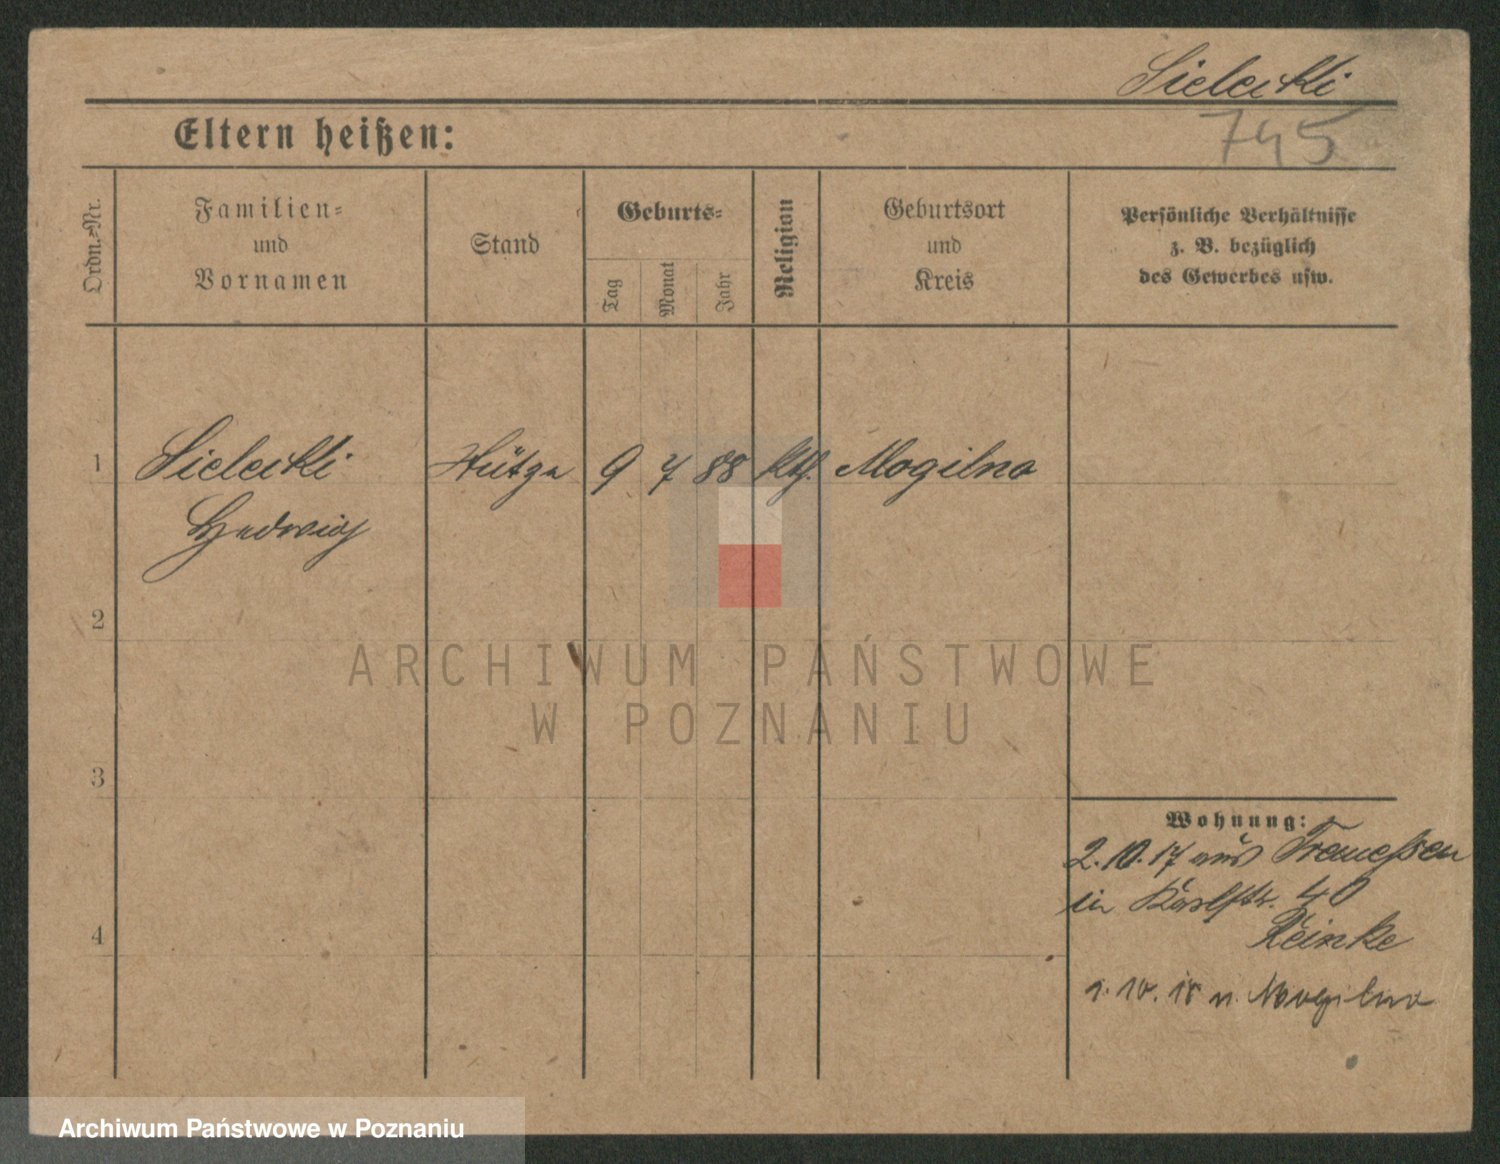 Sielecki
745
Eltern heißen:
Ordn.-Nr.
Familien-
und
Vornamen
Stand
Geburts-
Tag
Monat
Jahr
Religion
Geburtsort
und
Kreis
Persönliche Verhältnisse
z. B. bezüglich
des Gewerbes usw.
1 Sielecki Stütze 9 7 88 kth. Mogilno
Hedwig
2
3
4
Wohnung:
2.10.17 aus Tremessen
in Karlstr. 40
Reinke
10.18 n. Mogilno
ARCHIWUM PAŃSTWOWE
W POZNANIU
Archiwum Państwowe w Poznaniu